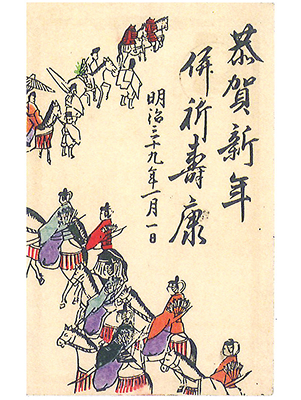 恭賀新年
併祈寿康
明治三十九年一月一日